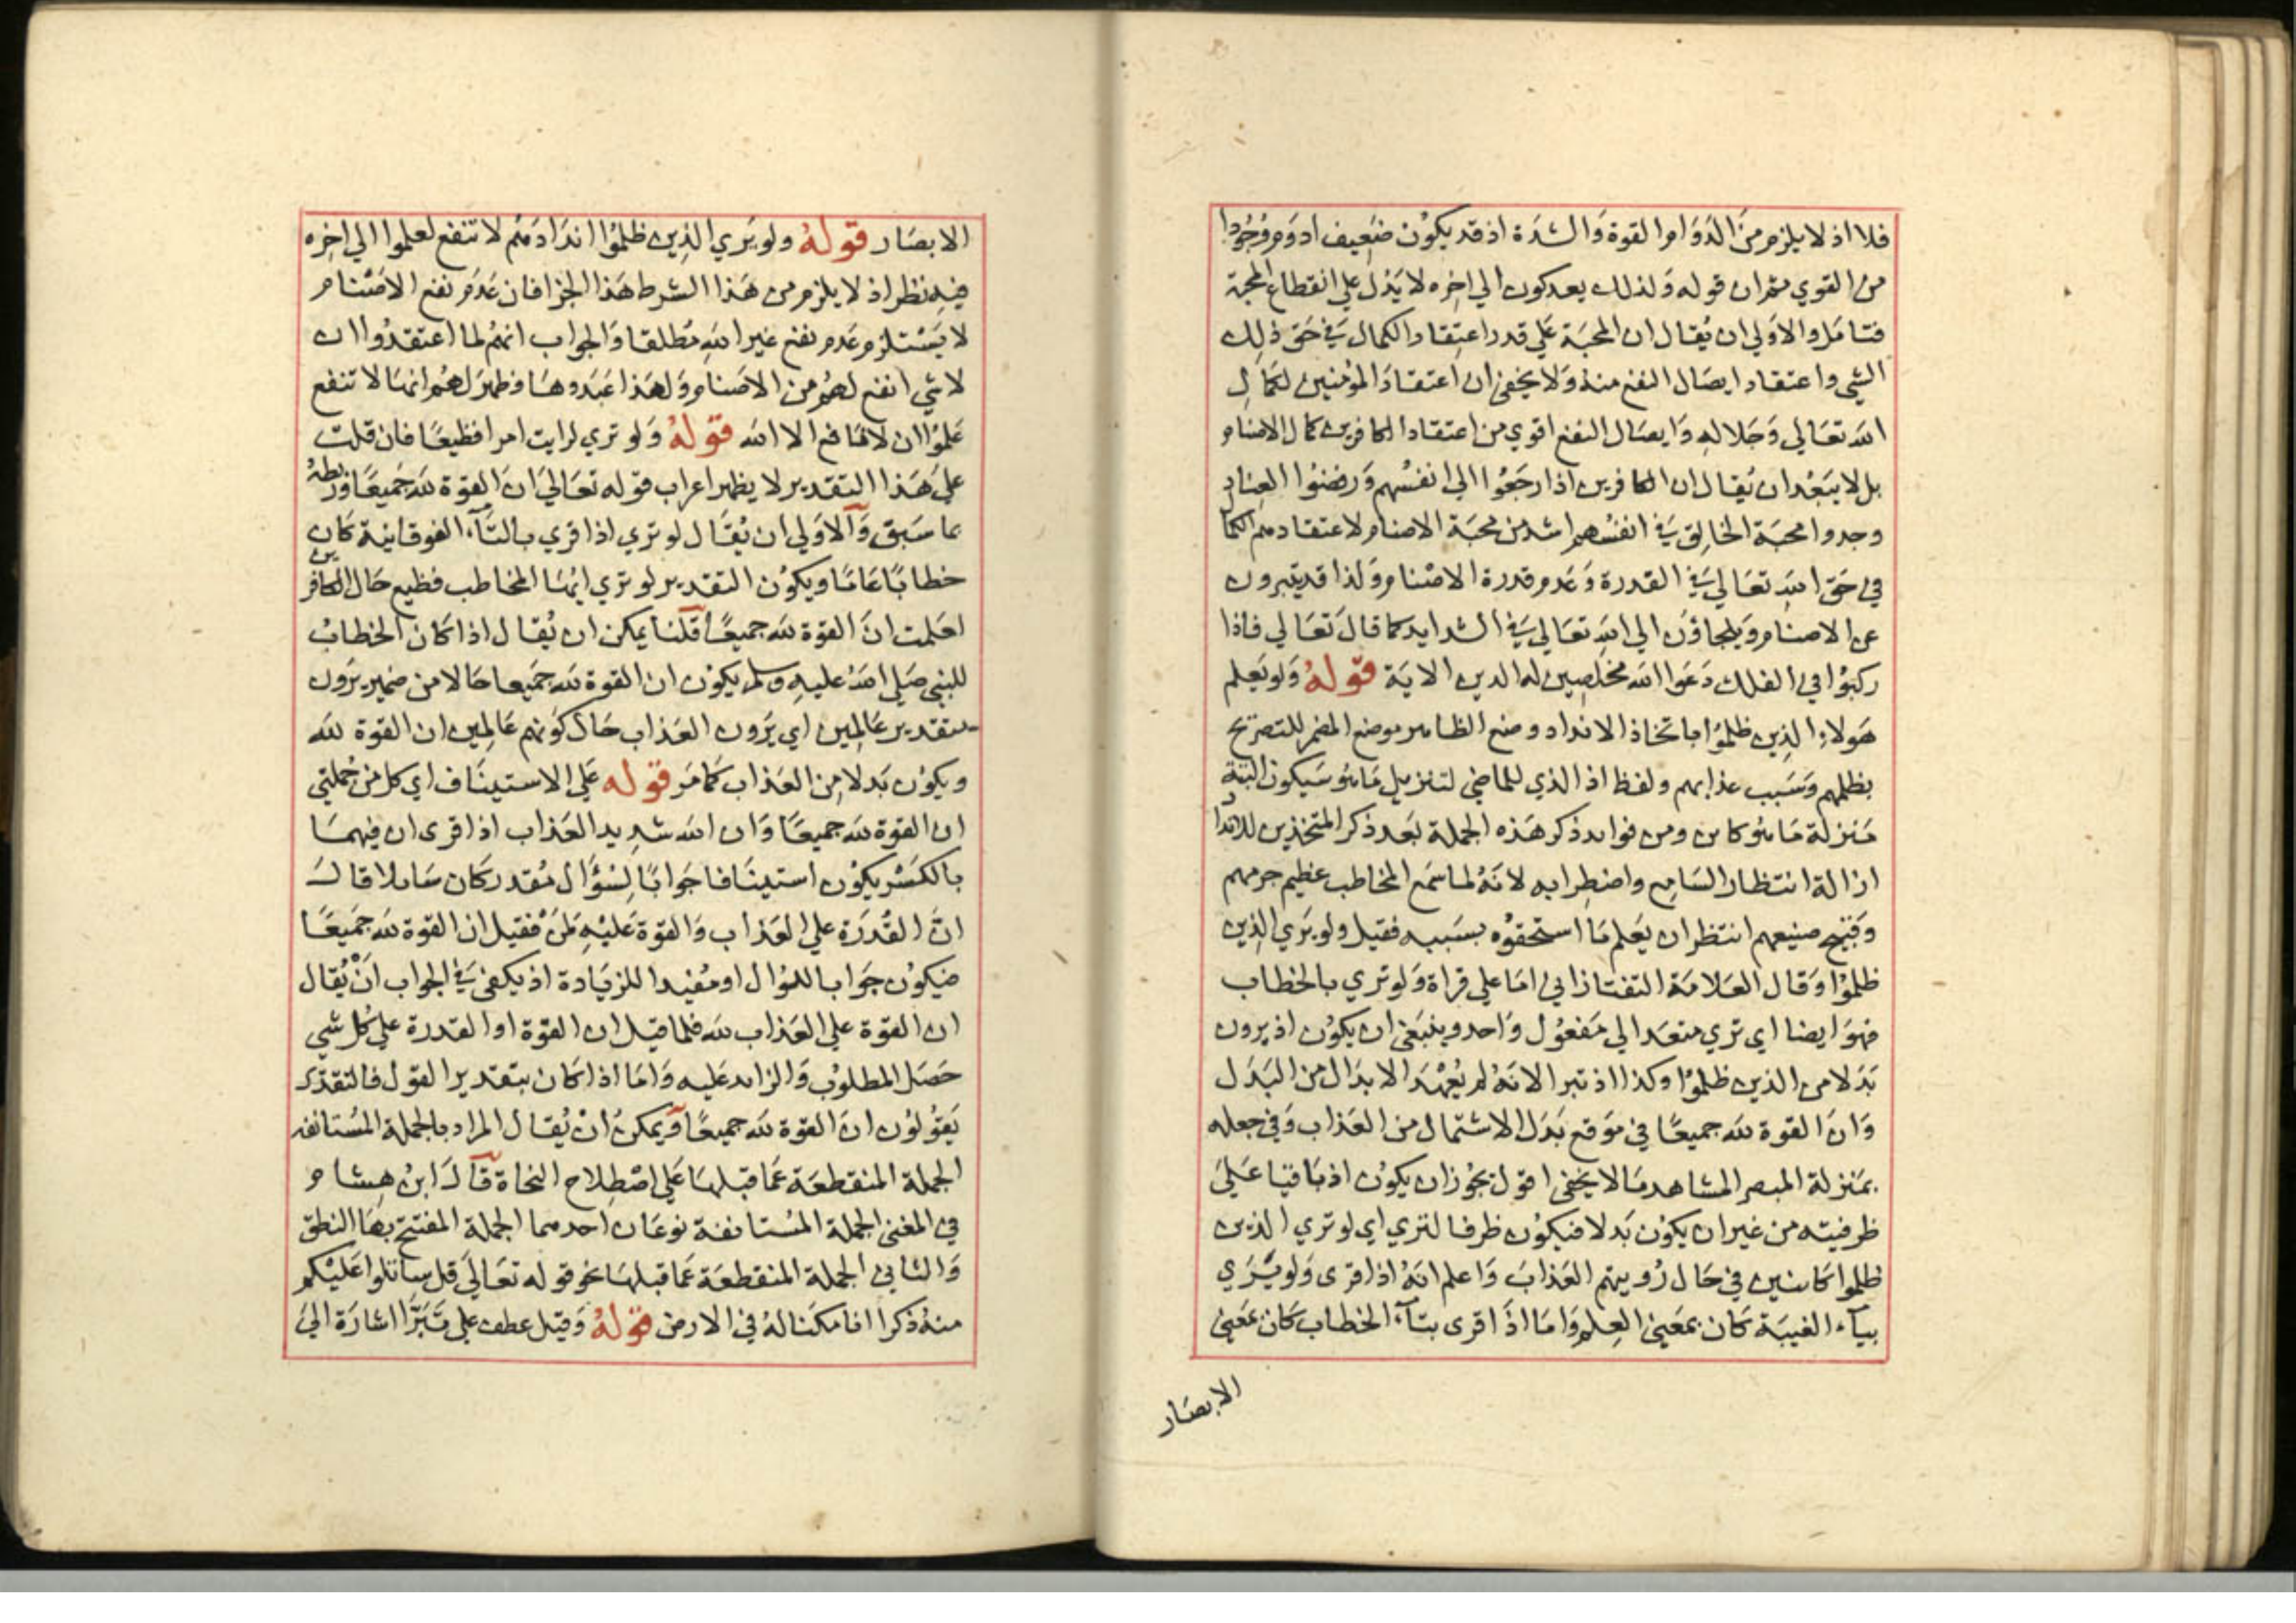 فلا اذ لا يلزم من الدوام القوة والشدة اذ قد يكون ضعيف ادوم وجودا
من القوي ثم ان قوله ولذلك يعدلون الي اخره لا يدل علي انقطاع المحبة
فتامل والاولي ان يقال ان المحبة علي قدر اعتقاد الكمال في حق ذلك
الشي واعتقاد ايصال النفع منه ولا يخفي ان اعتقاد المؤمنين لكمال
الله تعالي وجلاله وايصال النفع اقوي من اعتقاد الكافرين كمال الاصنام
بل لا يبعد ان يقال ان الكافرين اذا رجعوا الي انفسهم ورفضوا العناد
وجدوا محبة الخالق في انفسهم اشد من محبة الاصنام لاعتقادهم الكمال
في حق الله تعالي في القدرة وعدم قدرة الاصنام ولذا قد يتبرون
عن الاصنام ويلجاون الي الله تعالي في الشدايد كما قال تعالي فاذا
ركبوا في الفلك دعوا الله مخلصين له الدين الاية قوله ولو يعلم
هولاء الذين ظلموا باتخاذ الانداد وضع الظاهر موضع المضمر للتصريح
بظلمهم وسبب عذابهم ولفظ اذ الذي للماضي لتنزيل ما هو سيكون البتة
منزلة ما هو كاين ومن فوايد ذكر هذه الجملة بعد ذكر المتخذين للانداد
ازالة انتظار السامع واضطرابه لانه لما سمع المخاطب عظيم جرمهم
وقبيح صنيعهم انتظر ان يعلم ما استحقوه بسببه فقيل ولو يري الذين
ظلموا وقال العلامة التفتازاني اما علي قراة ولو تري بالخطاب
فهو ايضا اي تري متعد الي مفعول واحد وينبغي ان يكون اذ يرون
بدلا من الذين ظلموا وكذا اذ تبرا الا انه لم يعهد الابدال من البدل
وان القوة لله جميعا في موقع بدل الاشتمال من العذاب وفي جعله
بمنزلة المبصر المشاهد ما لا يخفي اقول يجوز ان يكون اذ باقيا علي
ظرفيته من غير ان يكون بدلا فيكون ظرفا لتري اي لو تري الذين
ظلموا كاينين في حال رويتهم العذاب واعلم انه اذا قرى ولو يري
بياء الغيبة كان بمعني العلم واما اذا قرى بتاء الخطاب كان بمعني
الابصار
الابصار قوله ولو يري الذين ظلموا اندادهم لا تنفع لعلموا الي اخره
فيه نظر اذ لا يلزم من هذا الشرط هذا الجزا فان عدم نفع الاصنام
لا يستلزم عدم نفع غير الله مطلقا والجواب انهم لما اعتقدوا ان
لا شي انفع لهم من الاصنام ولهذا عبدوها وظهر لهم انها لا تنفع
علموا ان لا نافع الا الله قوله ولو تري لرايت امرا فظيعا فان قلت
علي هذا التقدير لا يظهر اعراب قوله تعالي ان القوة لله جميعا وربطه
بما سبق والاولي ان يقال لو تري اذا قري بالتاء الفوقانية كان
خطابا عاما ويكون التقدير لو تري ايها المخاطب فظيع حال الكافرين
لعلمت ان القوة لله جميعا قلنا يمكن ان يقال اذا كان الخطاب
للنبي صلي الله عليه وسلم يكون ان القوة لله جميعا حالا من ضمير يرون
بتقدير عالمين اي يرون العذاب حال كونهم عالمين ان القوة لله
ويكون بدلا من العذاب كما مر قوله علي الاستيناف اي كل من جملتي
ان القوة لله جميعا وان الله شديد العذاب اذا قرى ان فيهما
بالكسر يكون استينافا جوابا لسؤال مقدر كان سايلا قال
ان القدرة علي العذاب والقوة عليه لمن فقيل ان القوة لله جميعا
فيكون جوابا للسؤال او مفيدا للزيادة اذ يكفي في الجواب ان يقال
ان القوة علي العذاب لله فلما قيل ان القوة او القدرة علي كل شي
حصل المطلوب والزايد عليه واما اذا كان بتقدير القول فالتقدير
يقولون ان القوة لله جميعا ويمكن ان يقال المراد بالجملة المستانفة
الجملة المنقطعة عما قبلها علي اصطلاح النحاة قال ابن هشام
في المغني الجملة المستانفة نوعان احدهما الجملة المفتتح بها النطق
والثاني الجملة المنقطعة عما قبلها نحو قوله تعالي قل ساتلوا عليكم
منه ذكرا انا مكنا له في الارض قوله وقيل عطف علي تبرا اشارة الي